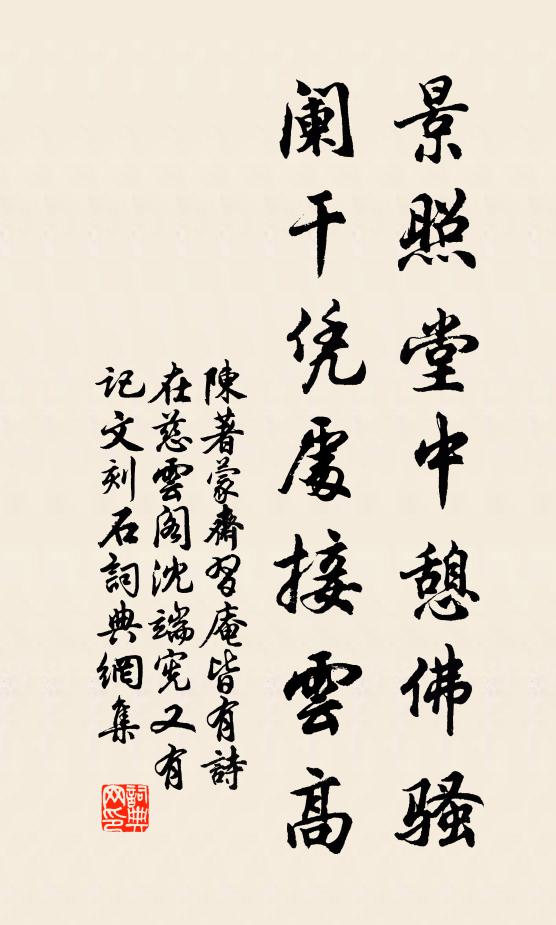 景照堂中憩佛骚
阑干凭處接雲高
陳著蒙齋習庵皆有詩
在慈雲阁沈端宪又有
记文刻石詞典網集
詞典网印